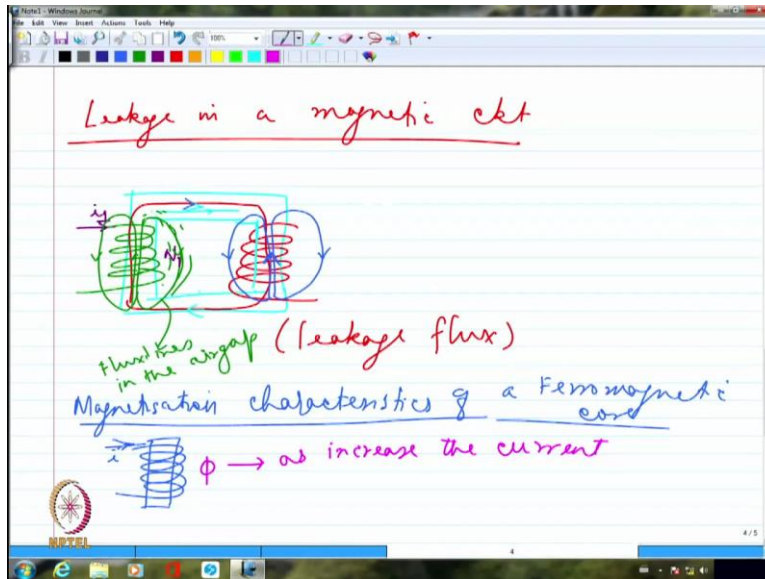 Note1 - Windows Journal
File Edit View Insert Actions Tools Help
100%
B I
Leakage in a magnetic ckt
i1
N1
Flux lines
in the airgap
(leakage flux)
Magnetisation characteristics of a Ferromagnetic
core
i
ϕ → as increase the current
NPTEL
4/5
4